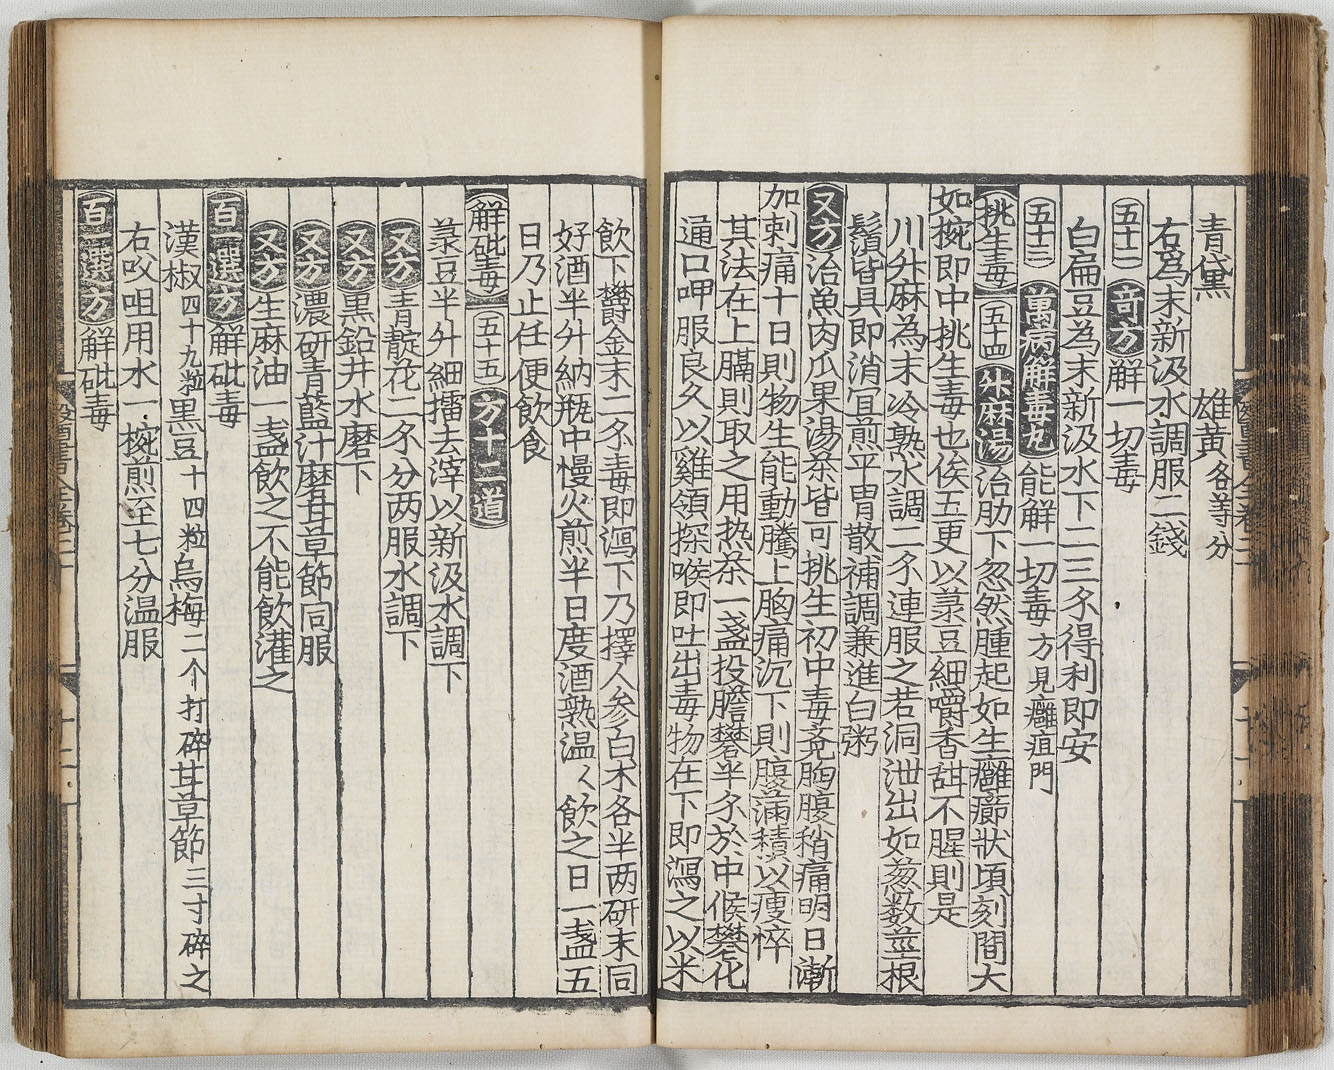 青黛 雄黃各等分
右為末新汲水調服二錢
五十二 奇方 解一切毒
白扁豆為末新汲水下二三錢得利即安
五十三 萬病解毒丸 能解一切毒方見癰疽門
挑生毒 五十四 升麻湯 治肋下忽然腫起如生癰癤狀頃刻間大
如椀即中挑生毒也俟五更以菉豆細嚼香甜不腥則是
川升麻為末冷熟水調二錢連服之若洞泄出如葱數莖根
鬚皆具即消宜煎平胃散補調兼進白粥
又方 治魚肉瓜果湯茶皆可挑生初中毒覺胸腹稍痛明日漸
加刺痛十日則物生能動騰上胸痛沉下則腹滿積以瘦悴
其法在上膈則取之用热茶一盞投膽礬半錢於中候礬化
通口呷服良久以雞領探喉即吐出毒物在下即瀉之以米
飲下欝金末二錢毒即瀉下乃擇人參白术各半两研末同
好酒半升納甁中慢火煎半日度酒熟温〻飲之日一盞五
日乃止任便飲食
解砒毒 五十五 方十二道
菉豆半升細擂去滓以新汲水調下
又方 青靛花二錢分两服水調下
又方 黒鉛井水磨下
又方 濃研青藍汁磨甘草節同服
又方 生麻油一盞飲之不能飲灌之
百一選方 解砒毒
漢椒四十九粒黒豆十四粒烏梅二个打碎甘草節三寸碎之
右㕮咀用水一椀煎至七分温服
百一選方 解砒毒